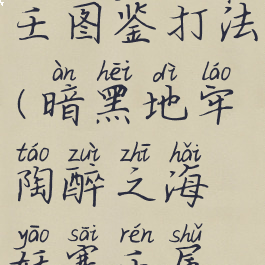 壬图鉴打法
àn hēi dì láo
(暗黑地牢
táo zuì zhī hǎi
陶醉之海
yāo sāi rén shǔ
妖塞壬属